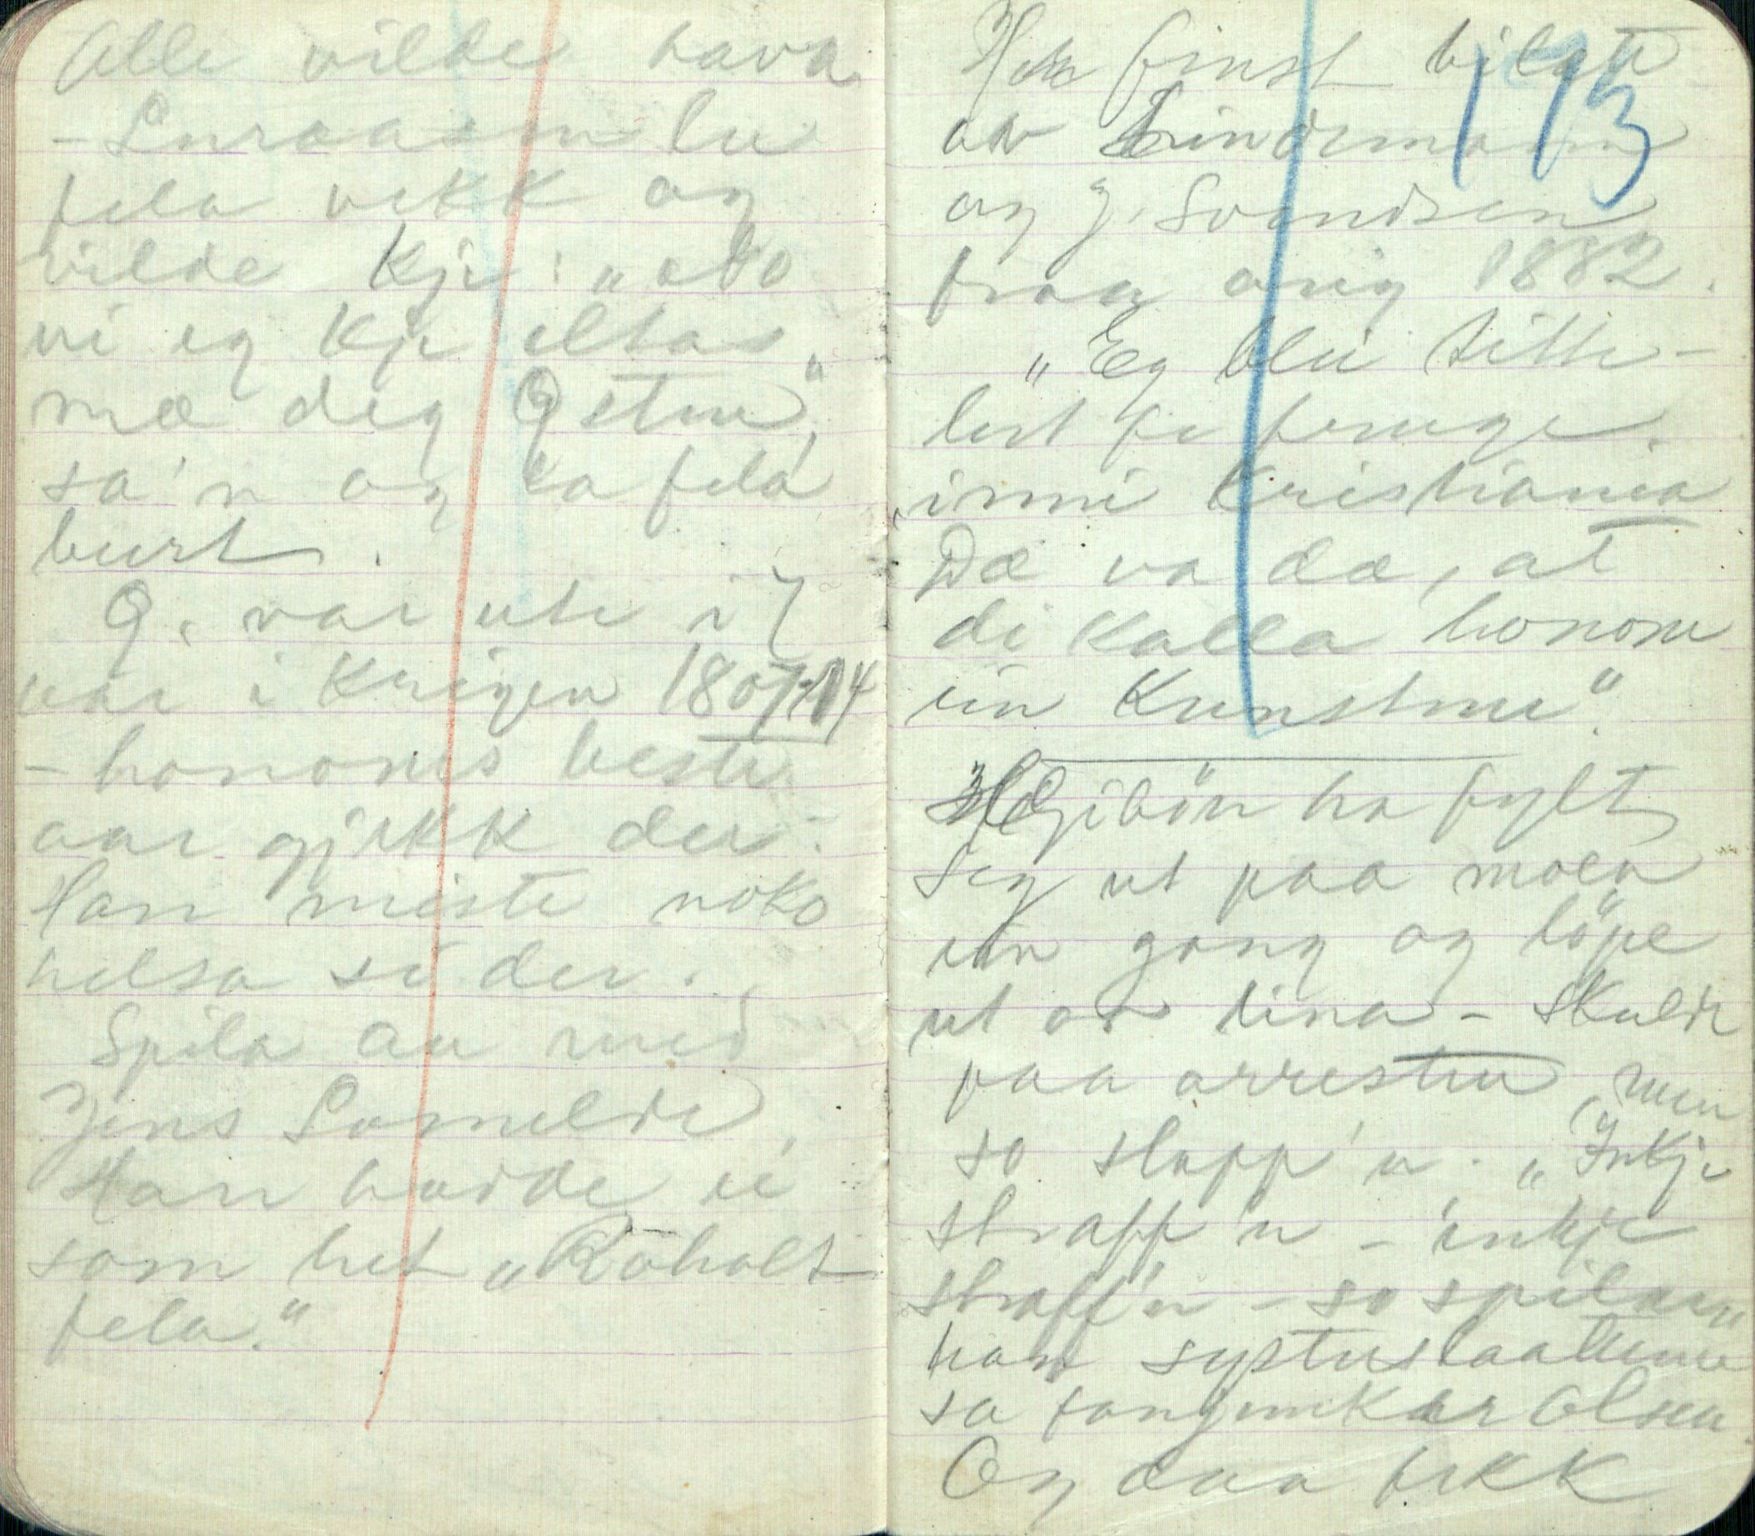 Alle vilde hava
- Luraasen la
fela vekk og
vilde kje: "nei
vi eg kje eltas
mæ deg Østen",
sa'n og la fela
burt.
Ø. var ute i 7
aar i krigen 1807-14
- honoms beste
aar gjekk der:
Han miste noko
helsa si der.
Spila au med
Jens Somelde,
Han hadde ei
som het "Röholt
fela."
Her finst bilæte
av Lindemann
og J. Svendsen
fraa arig 1882.
"Eg blei titte-
lert fe
inni Kristiania
Dæ va dæ, at
di kalla honom
ein Kunstner".
173
Gibøn ha fylt
seg ut paa moen
ein gang og löpe
ut av lina - skulde
paa arresten, men
so slapp'n. "Inkje
straff'n - inkje
straff'n - so spilar
han systerslaattenne
sa fangevikar Olsen.
Og daa fekk